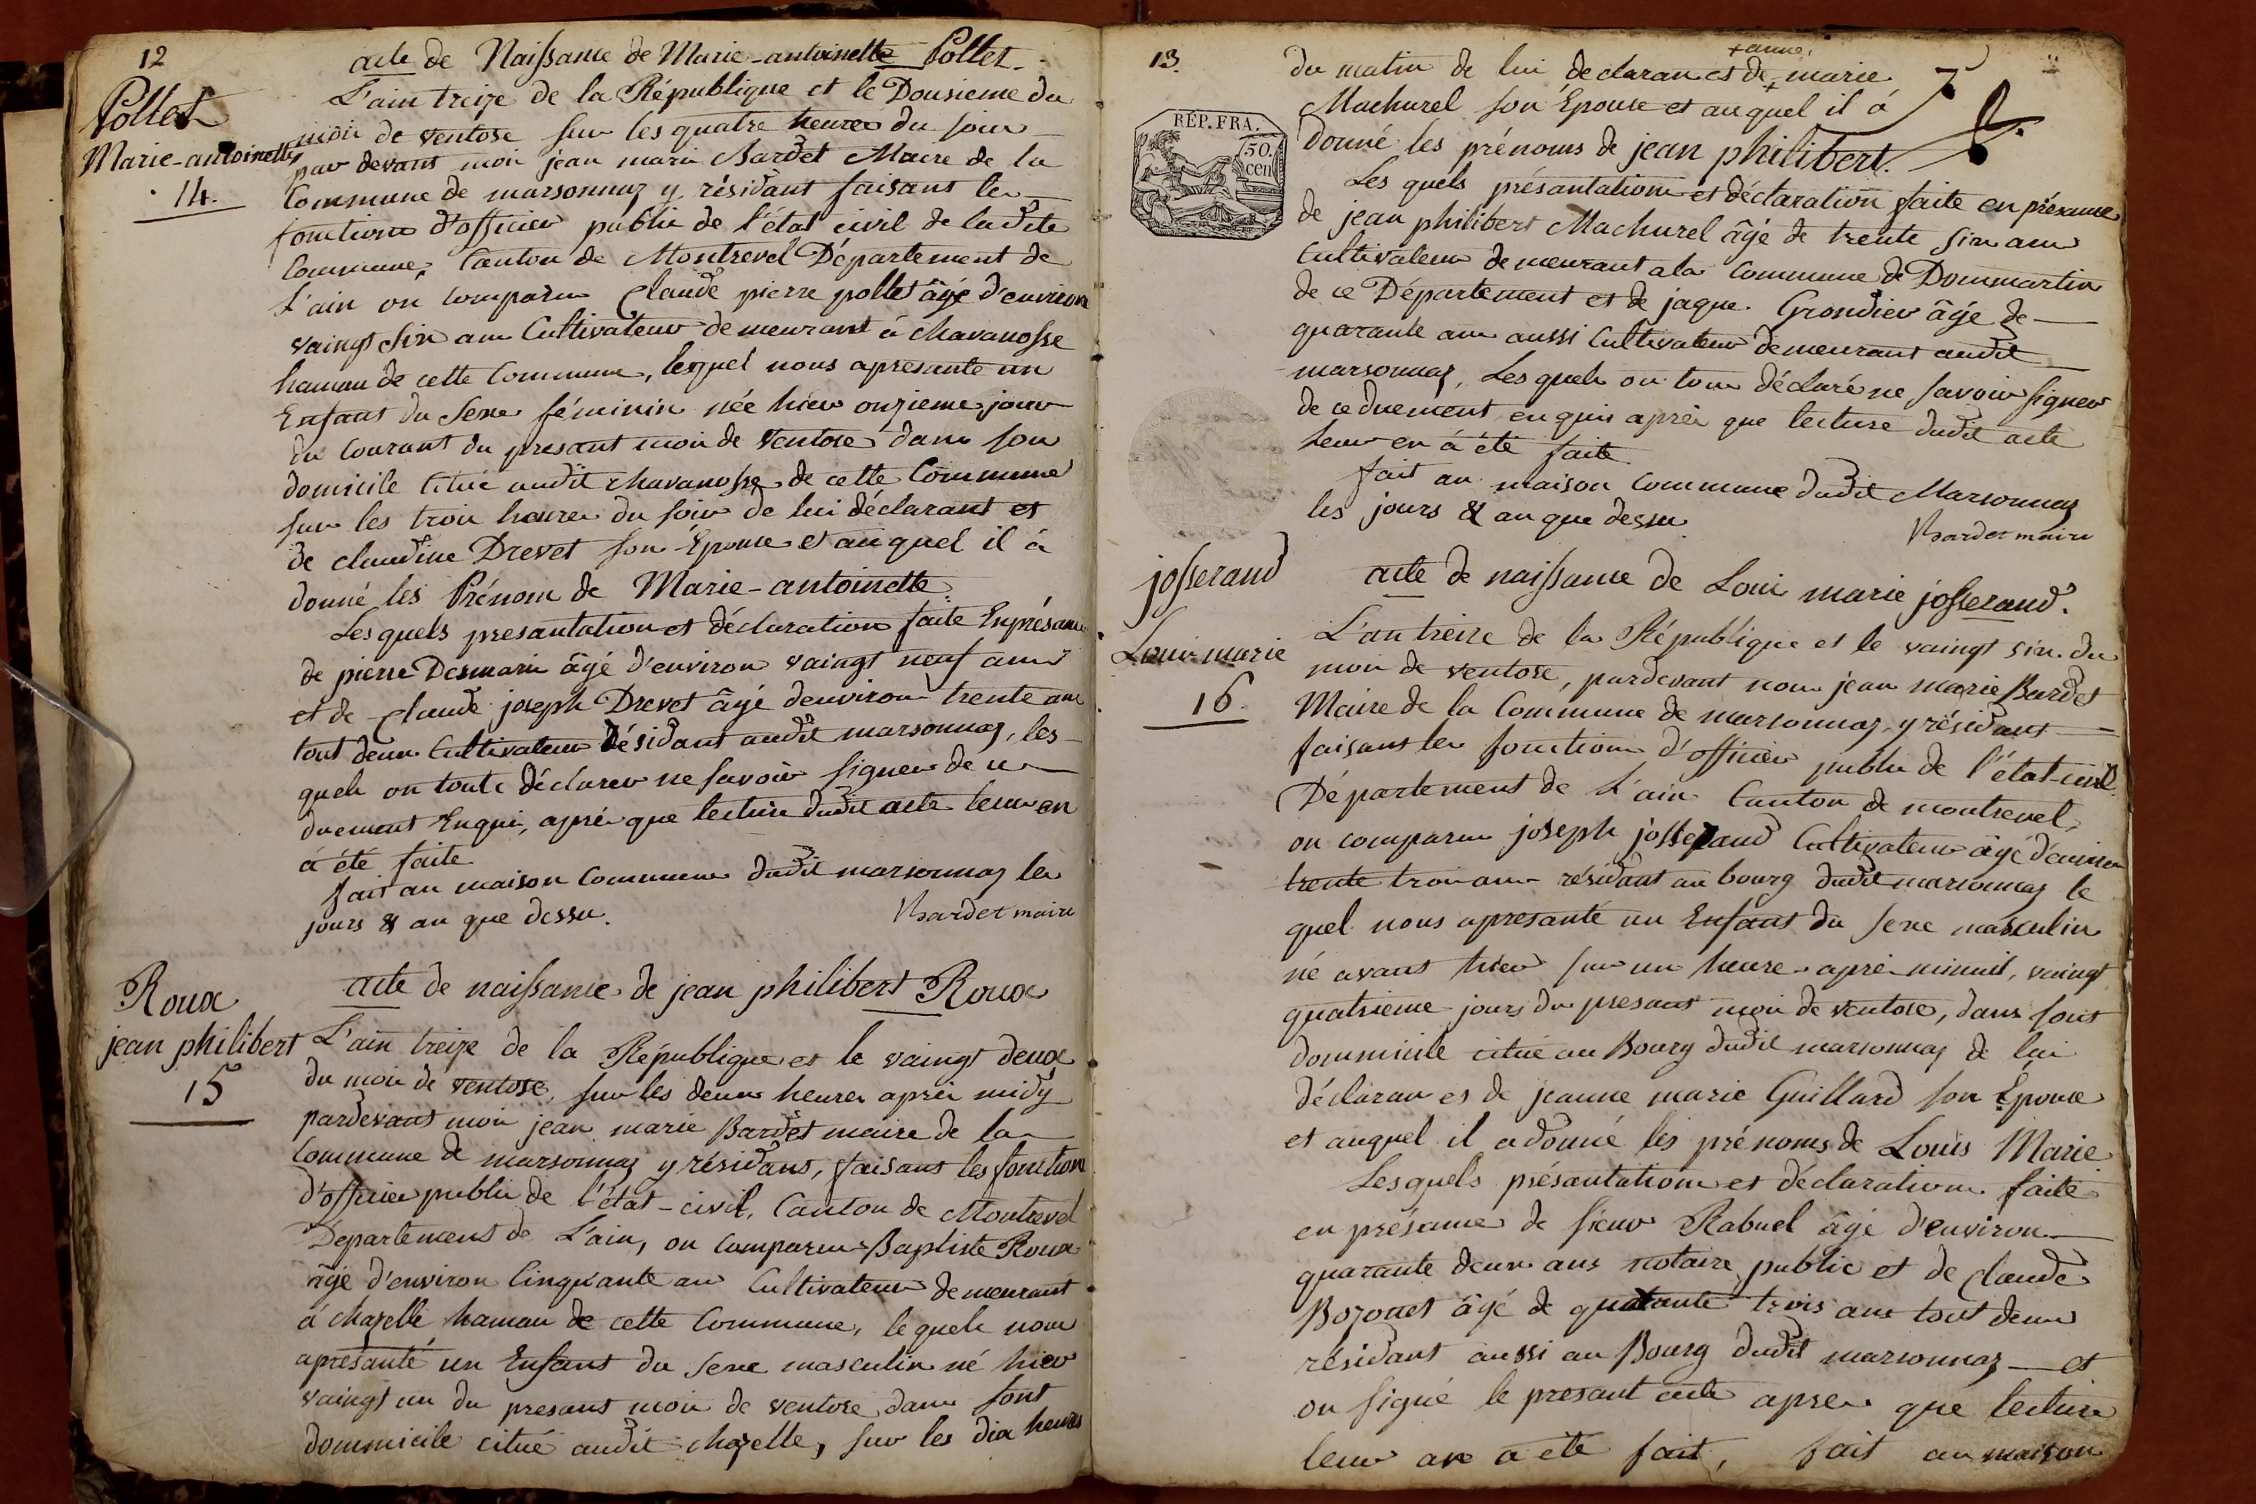 12
acte de Naissance de Marie-antoinette Pollet.
Pollet
Marie-antoinette
14.
L'ain treize de la République et le Dousieme du
mois de ventose sur les quatre heures du soir
par devant moi jean marie Bardet Maire de la
Commune de marsonnaz y résidant faisant les
fonctions d'officier public de l'état civil de la dite
Commune, Canton de Montrevel Département de
L'ain on comparu Claude pierre pollet âgé d'environ
vaingt six ans Cultivateur demeurant à Chavanosse
hamau de cette Commune, lesquel nous apresante un
Enfant du Sexe féminin née hier onzieme jour
du Courant du presant mois de Ventose dans son
domicile Citué audit chavanosse de cette Commune
sur les trois heures du soir de lui déclarant et
de claudine Drevet son Épouse et auquel il à
donné les Prénom de Marie-antoinette
Les quels presantation et déclaration faite En présance
de pierre Desmaris âgé d'environ vaingt neuf ans
et de Claude joseph Drevet âgé denviron trente ans
tout deux Cultivateur Résidant audit marsonnaz, les
quels on toute déclarer ne savoir signer de ce
duement Enquis, après que lecture dudit acte leur en
à été faite
fait au maison Commune dudit marsonnaz les
jours & an que dessu.
Bardet maire
Roux
jean philibert
15
acte de naissance de jean philibert Roux
L'ain treize de la République et le vaingt deux
du mois de ventose, sur les deux heures après midy
pardevant moi jean marie Bardet maire de la
Commune de marsonnaz y résidant, faisant les fonction
d'officier public de l'état-civil, Canton de Montrevel
Département de L'ain, on comparu Baptiste Roux
âgé d'environ Cinquante an Cultivateur demeurant
à chazelle hamau de cette Commune, le quels nous
apresanté un Enfant du sexe masculin né hier
vaingt un du presant mois de ventose dans sont
dommicile citué audit chazelle, sur les dix heures
13.
du matin de lui declaran et de + marie
+ anne.
Machurel son Épouse et auquel il á
donné les prénoms de jean philibert.
RÉP. FRA.
50.
cen
Les quels présantation et déclaration faite en présance
de jean philibert Machurel âgé de trente six ans
Cultivateur demeurant a la Commune de Dommartin
de ce Département et de jaque Grondier âgé de
quarante ans aussi Cultivateur demeurant audit
marsonnaz, Les quels on tous déclaré ne savoir signer
de ce duement enquis après que lecture dudit acte
leur en à été faite
fait au maison Commune dudit Marsonnaz
les jours & an que dessu.
Bardet maire
josserand
Louis marie
16.
acte de naissance de Louis marie josserand.
L'an treize de la République et le vaingt six du
mois de ventose, pardevant nous jean marie Bardet
Maire de la Commune de marsonnaz y résidant
faisant les fonctions d'officier public de l'état civil
Département de L'ain Canton de montrevel,
on comparu joseph josserand Cultivateur âgé d'environ
trente trois ans résidant au bourg dudit marsonnaz le
quel nous apresanté un Enfant du sexe masculin
né avant hier sur un heure après minuit, vaingt
quatrieme jours du presant mois de ventose, dans sont
dommicile citué au Bourg dudit marsonnaz de lui
déclaran et de jeanne marie Guillard son Épouse
et auquel il a donné les prénoms de Louis Marie
Lesquels présantation et déclaration faite
en présance de sieur Rabuel âgé d'environ
quarante deux ans notaire public et de Claude
Bozonet âgé de quarante trois ans tout deux
résidant aussi au Bourg dudit marsonnaz et
on signé le presant acte apres que lecture
leur an a été fait, fait au maison